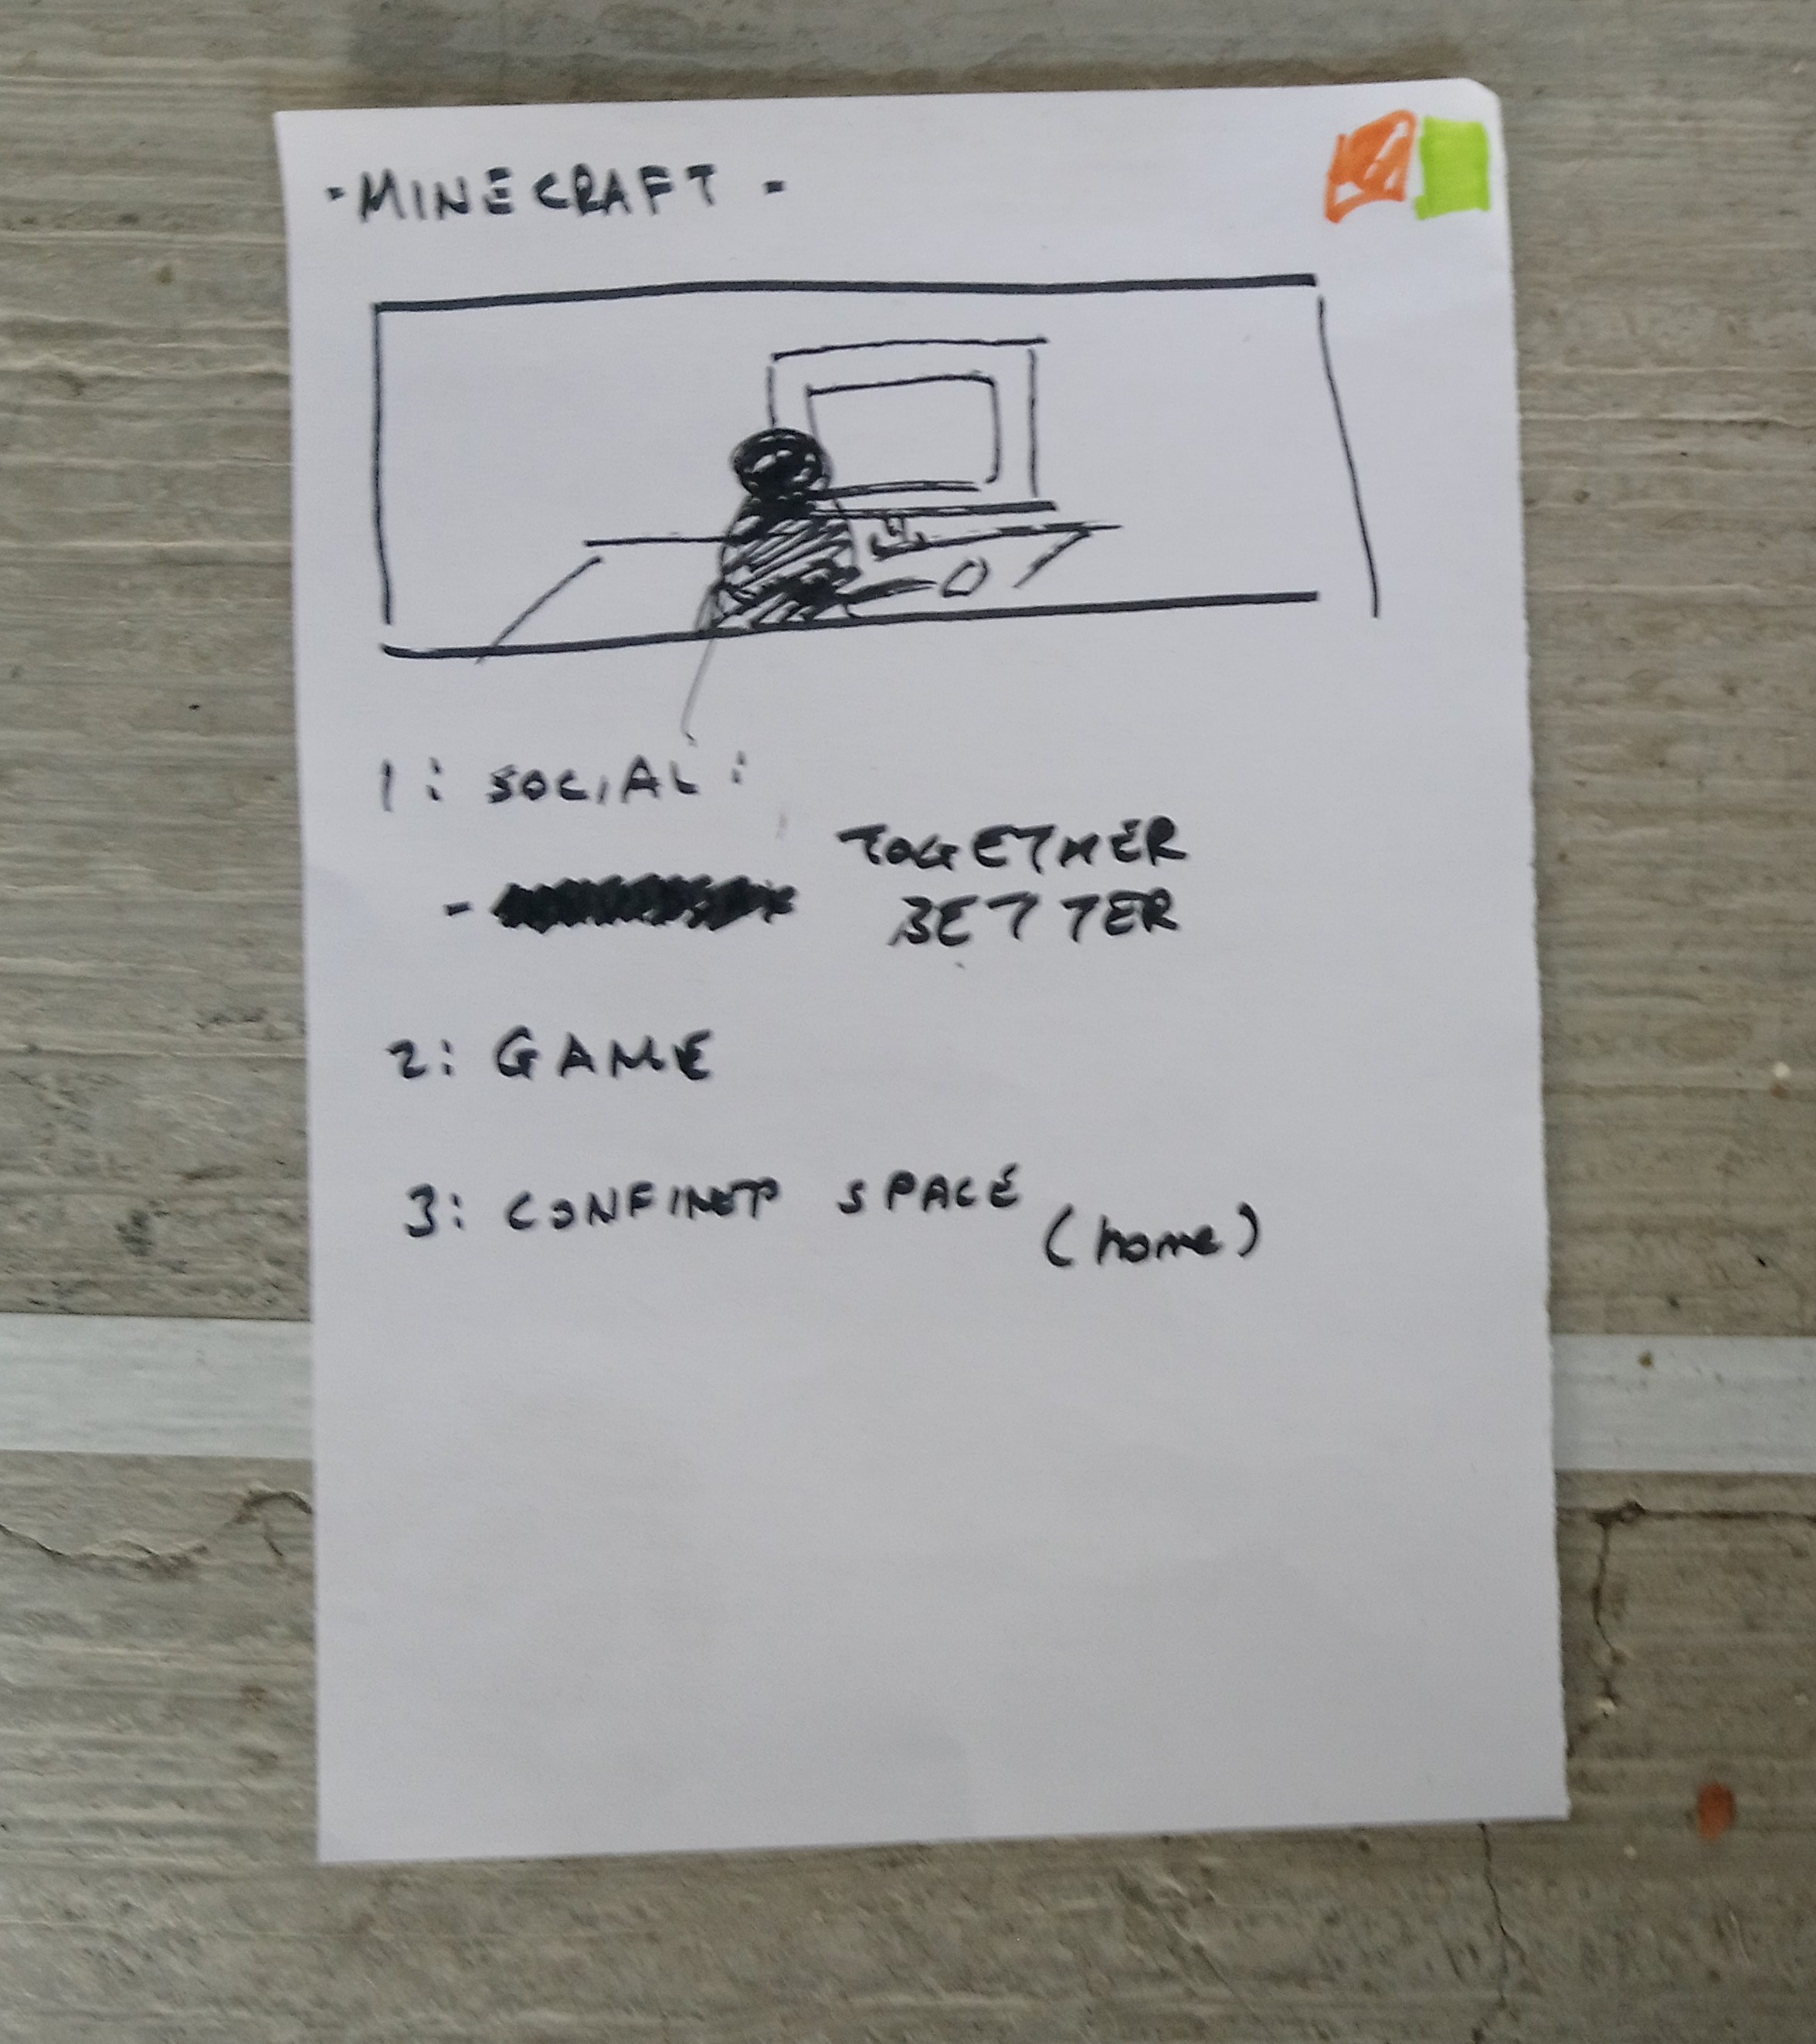 - MINECRAFT -
1: SOCIAL:
- TOGETHER
BETTER
2: GAME
3: CONFINED SPACE
(home)